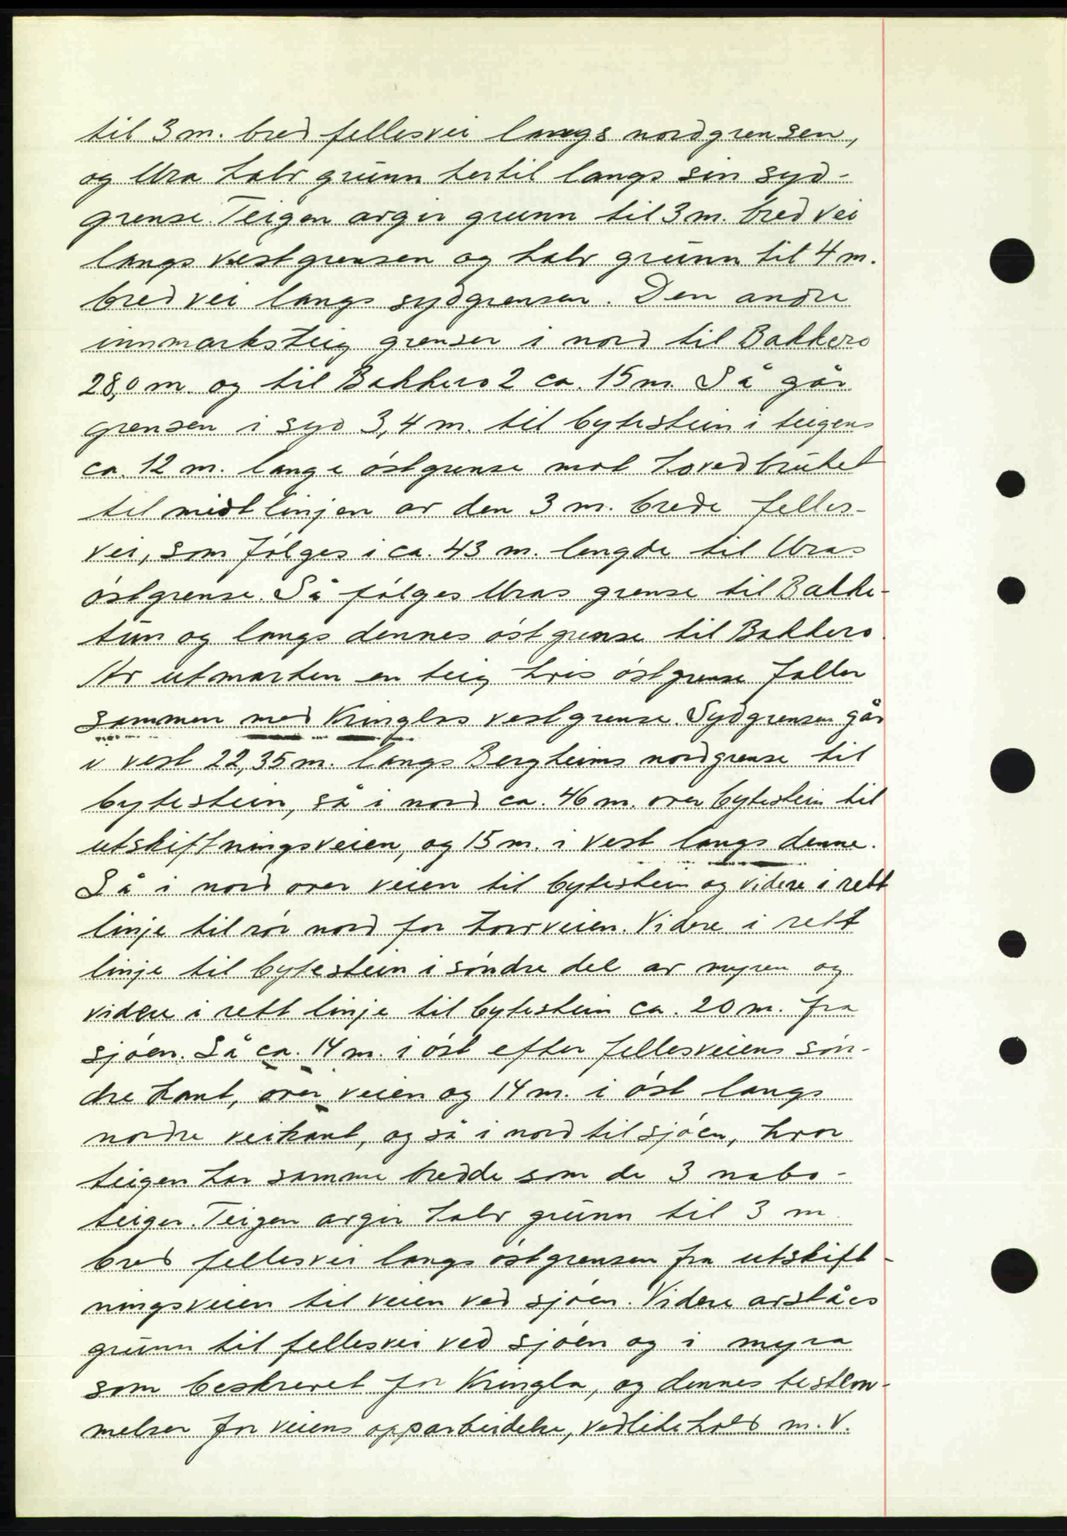 til 3 m. bred fellesvei langs nordgrensen,
og Ura halv grunn hertil langs sin syd-
grense. Teigen avgir grunn til 3 m. bred vei
langs vestgrensen og halv grunn til 4 m.
bred vei langs sydgrensen. Den andre
innmarksteig grenser i nord til Bakkero
28,0 m. og til Bakkero 2 ca. 15 m. Så går
grensen i syd 3,4 m. til bytestein i teigens
ca. 12 m. lange østgrense mot hovedbruket
til midtlinjen av den 3 m. brede felles-
vei, som følges i ca. 43 m. lengde til Uras
østgrense. Så følges Uras grense til Bakke-
tun og langs dennes østgrense til Bakkero.
Av utmarken en teig hvis østgrense faller
sammen med Kringlas vestgrense. Sydgrensen går
i vest 22,35 m. langs Bergheims nordgrense til
bytestein, så i nord ca. 46 m. over bytestein til
utskiftningsveien, og 15 m. i vest langs denne.
Så i nord over veien til bytestein og videre i rett
linje til rør nord for torvveien. Videre i rett
linje til bytestein i søndre del av myren og
videre i rett linje til bytestein ca. 20 m. fra
sjøen. Så ca. 14 m. i øst efter fellesveiens søn-
dre kant, over veien og 14 m. i øst langs
nordre veikant, og så i nord til sjøen, hvor
teigen har samme bredde som de 3 nabo-
teiger. Teigen avgir halv grunn til 3 m.
bred fellesvei langs østgrensen fra utskift-
ningsveien til veien ved sjøen. Videre avståes
grunn til fellesvei ved sjøen og i myra
som beskrevet for Kringla, og dennes bestem-
melser for veiens opparbeidelse, vedlikehold m.v.